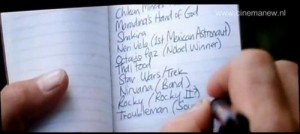 www.cinemanew.nl
Maradona's Hand of God
Shakira
Neri Vela (1st Mexican Astronaut)
Octavio Paz (Nobel Winner)
Thai Food
Star Wars/Trek
Nirvana (Band)
Rocky (Rocky II?)